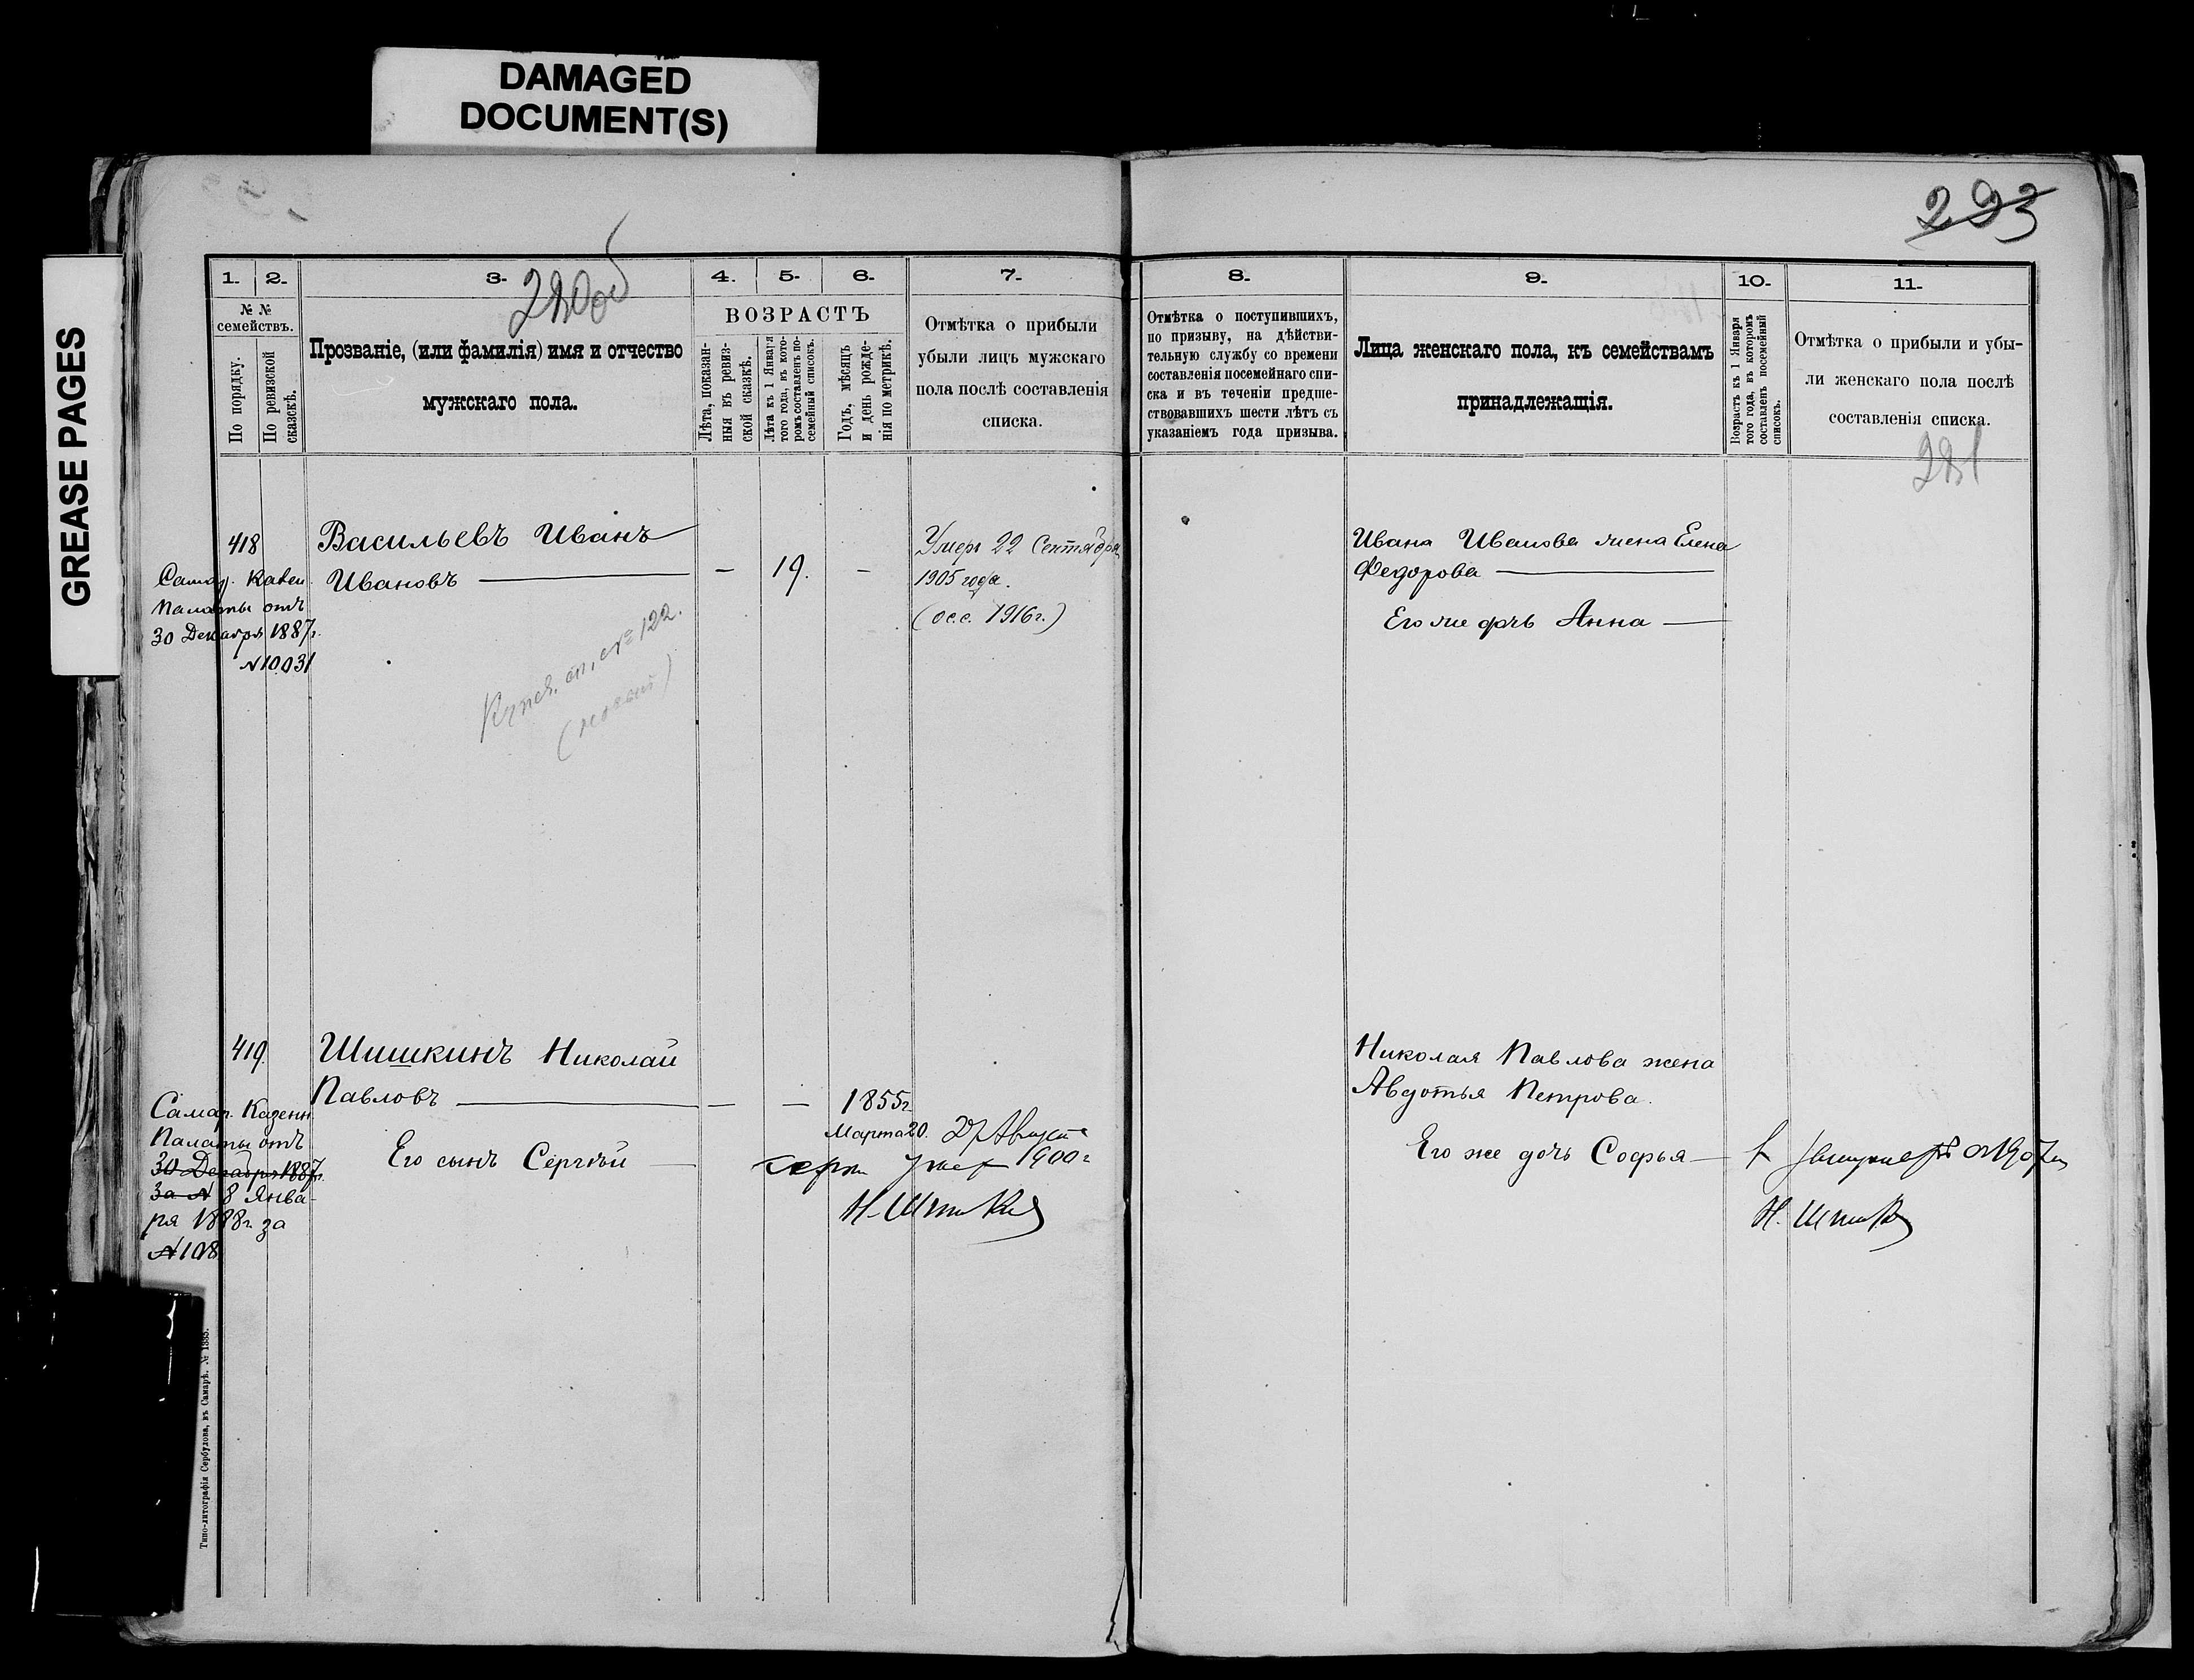 DAMAGED
DOCUMENT(S)
GREASE PAGES
293
1. 2. 3. 4. 5. 6. 7.
280об
№ №
семействъ.
По порядку.
По ревизской
сказкѣ.
Прозваніе, (или фамилія) имя и отчество
мужскаго пола.
ВОЗРАСТЪ
Лѣта, показан-
ныя въ ревиз-
ской сказкѣ.
Лѣта къ 1 Января
того года, въ кото-
ромъ составленъ по-
семейный списокъ.
Годъ, мѣсяцъ
и день рожде-
нія по метрикѣ.
Отмѣтка о прибыли
убыли лицъ мужскаго
пола послѣ составленія
списка.
418
Васильевъ Иванъ
Ивановъ
— 19. —
Умеръ 22 Сентября
1905 года.
(ос.с. 1916г.)
Самар. Казен.
Палаты отъ
30 Декабря 1887г.
№10031
Купеч. сп. ст № 122.
419.
Шишкинъ Николай
Павловъ
— — 1855г.
Марта 20.
Его сынъ Сергѣй
27 Августа
умер 1900г
Н. Шишкин
Самар. Казенн.
Палаты отъ
30 Декабря 1887г.
за № 8 Янва-
ря 1888г. за
№ 108
Типо-литографія Сербулова, въ Самарѣ. № 1885.
8. 9. 10. 11.
Отмѣтка о поступившихъ,
по призыву, на дѣйстви-
тельную службу со времени
составленія посемейнаго спи-
ска и въ теченіи предше-
ствовавшихъ шести лѣтъ съ
указаніемъ года призыва.
Лица женскаго пола, къ семействамъ
принадлежащія.
Возрастъ къ 1 Января
того года, въ которомъ
составленъ посемейный
списокъ.
Отмѣтка о прибыли и убы-
ли женскаго пола послѣ
составленія списка.
281
Ивана Иванова жена Елена
Федорова
Его же дочь Анна
Николая Павлова жена
Авдотья Петрова.
Его же дочь Софья
Н. Шишк